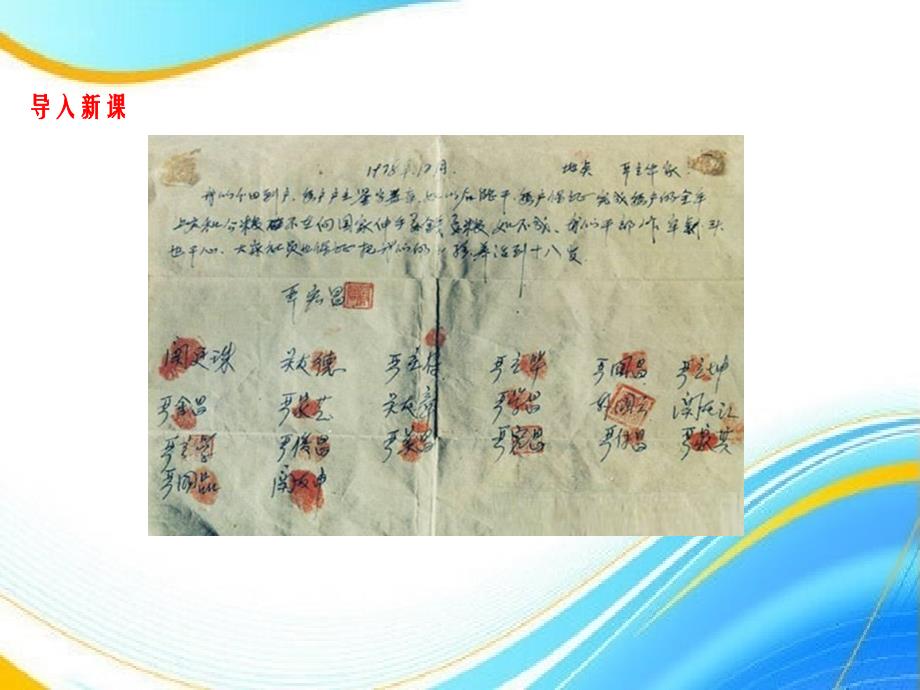 导入新课
1978年12月 地点 严立华家
我们分田到户,每户户主签字盖章,如以后能干,每户保证完成每户的全年
上交和公粮 不在向国家伸手要钱要粮,如不成,我们干部作牢刹头
也干心,大家社员也保证把我们的小孩养活到十八岁
严宏昌
关廷珠 关友德 严立符 严立华 严国昌 严立坤
严金昌 严家芝 关友章 严学昌 韩国云 关友江
严立学 严俊昌 严美昌 严宏昌 严付昌 严家其
严国品 关友申